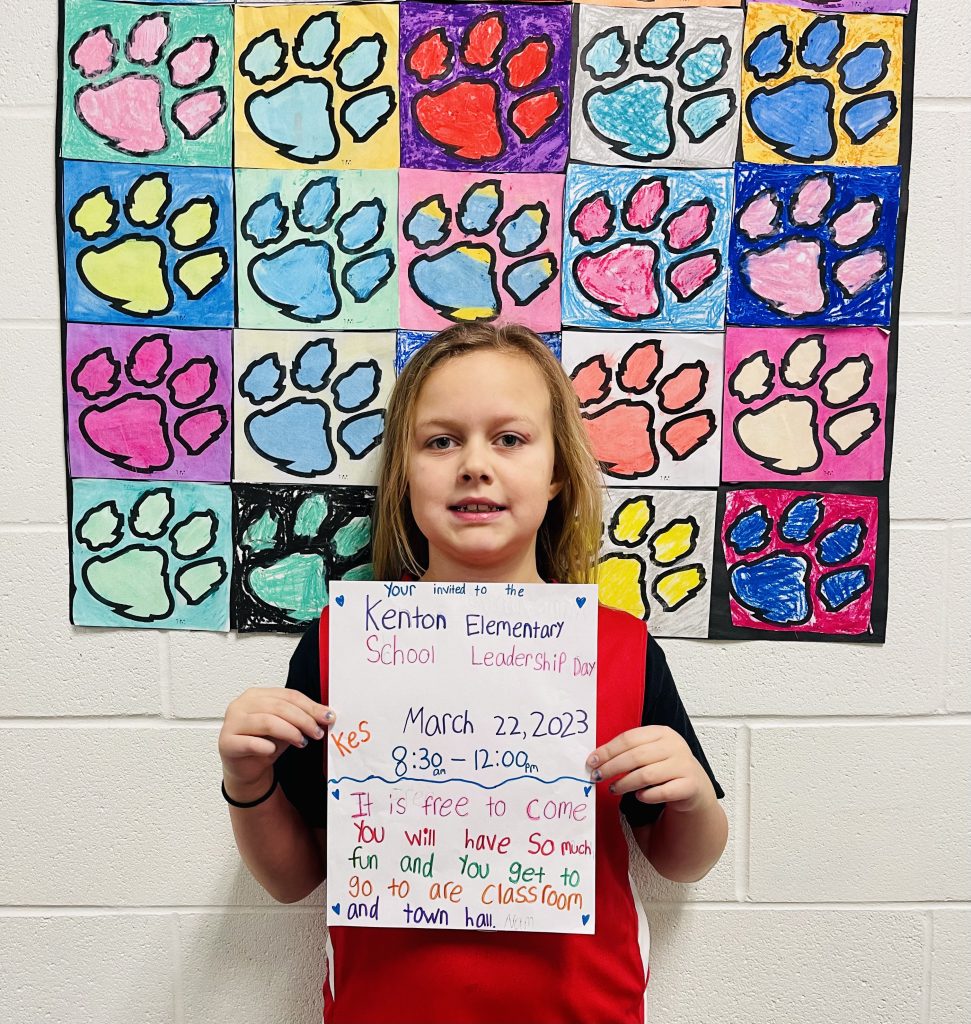 Your invited to the
Kenton Elementary
School Leadership Day
March 22, 2023
Kes
8:30am – 12:00pm
It is free to come
You will have so much
fun and you get to
go to are classroom
and town hall.